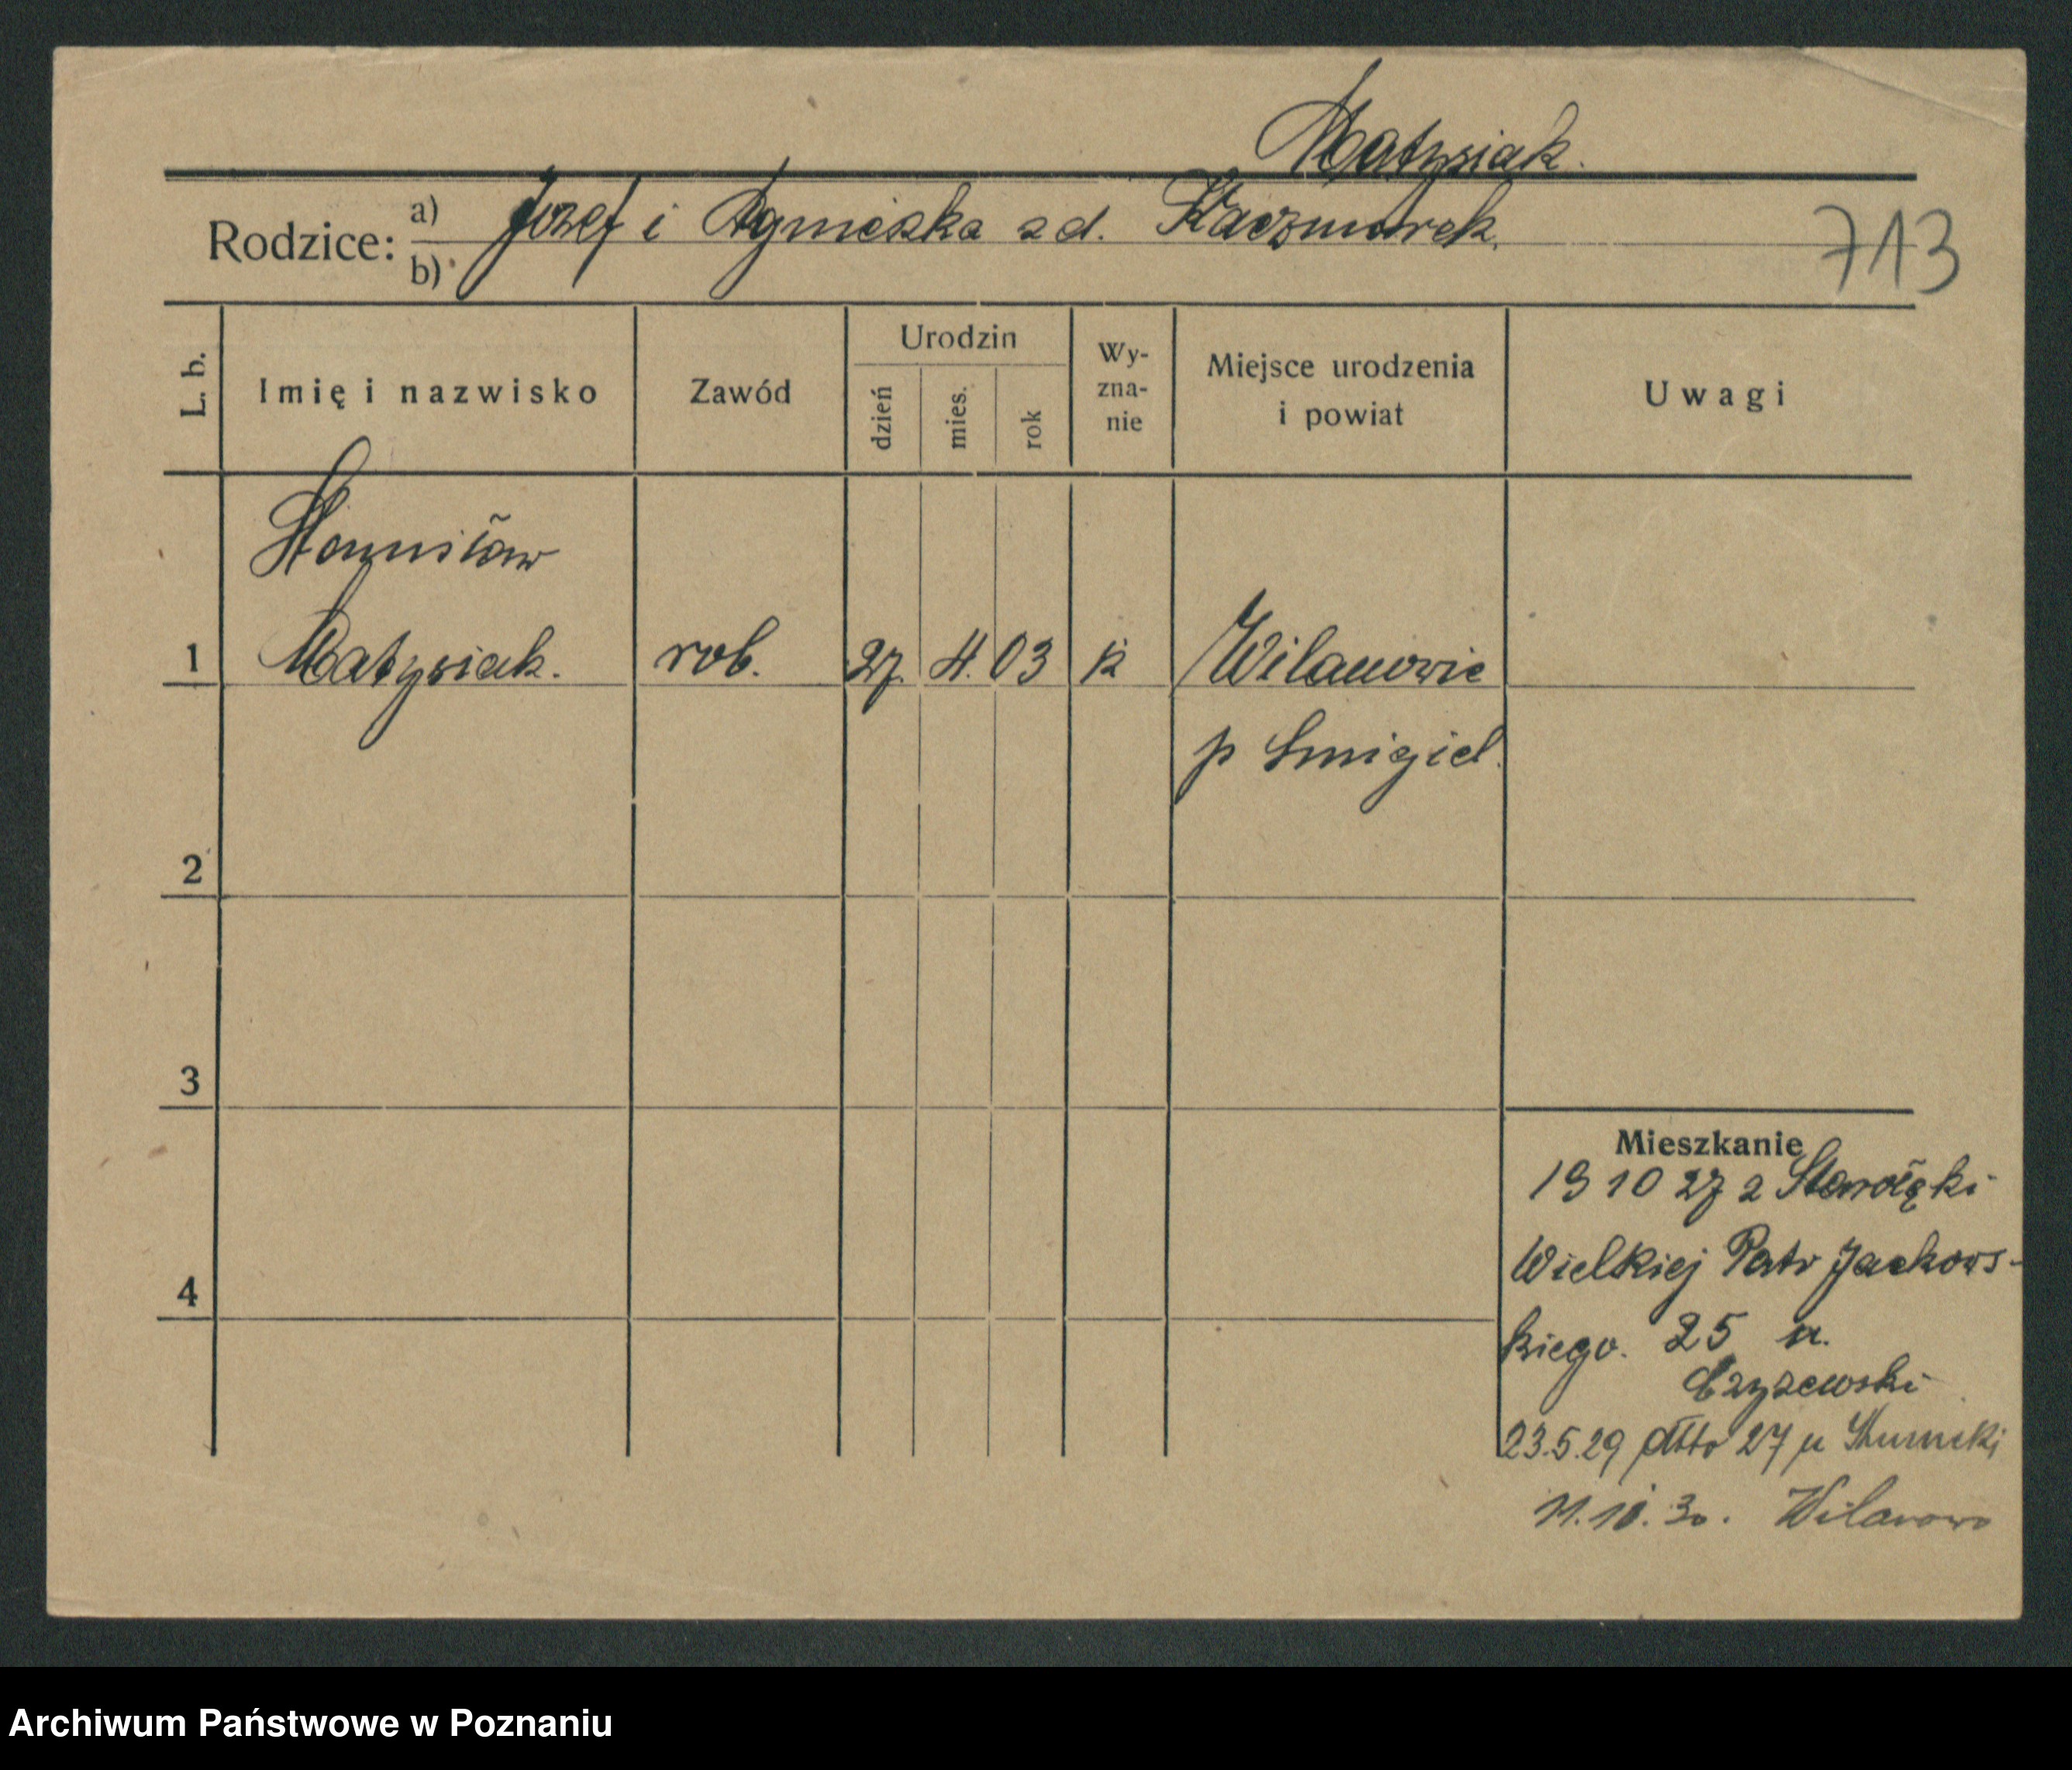 Matysiak.
Rodzice: a) Józef i Agnieszka zd. Kaczmarek.
b)
713
L. b.
Imię i nazwisko
Zawód
Urodzin
dzień
mies.
rok
Wy-
zna-
nie
Miejsce urodzenia
i powiat
Uwagi
Stanisław
1 Matysiak. rob. 27. 4. 03 k Wilanowie
p Smigiel.
2
3
4
Mieszkanie
19 10 27 z Starołęki
Wielkiej Patr Jackows-
kiego. 25 u.
Czyzewski
23.5.29 dtto 27 u
11.10.30. Wilanowo
Archiwum Państwowe w Poznaniu